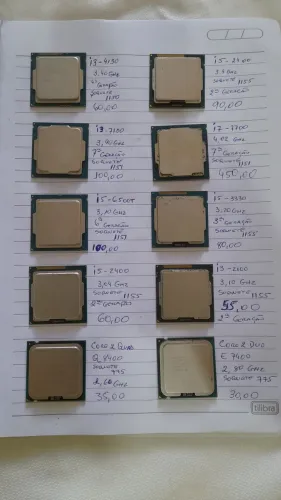 i3-4130
3,40 GHz
4ª Geração
Soquete
1150
60,00
i5-2400
Soquete 1155
90,00
i3-7100
3,90 GHz
7ª Geração
Soquete
1151
100,00
i7-7700
7ª Geração
Soquete 1151
450,00
i5-6500T
3,10 GHz
6ª Geração
Soquete
1151
100,00
i5-3330
3,00 GHz
3ª Geração
Soquete 1155
80,00
i5-2400
Soquete 1155
2ª Geração
60,00
i3-2100
3,10 GHz
Soquete 1155
55,00
2ª Geração
Core 2 Quad
Q8400
Soquete
775
2,66 GHz
35,00
Core 2 Duo
E7400
2,80 GHz
Soquete 775
30,00
tilibra